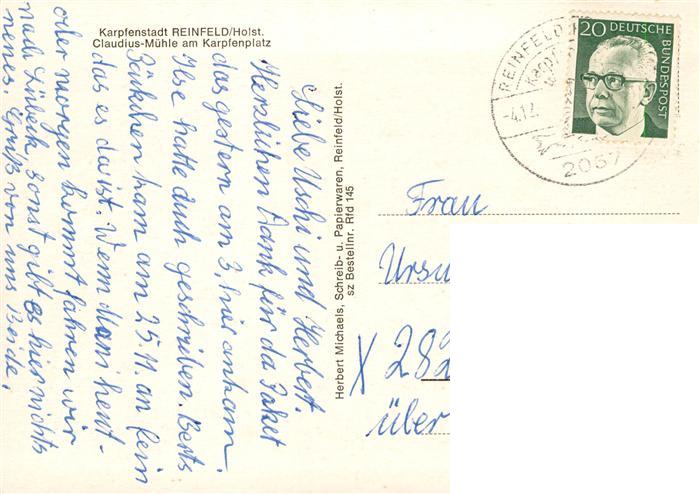 Karpfenstadt REINFELD/Holst.
Claudius-Mühle am Karpfenplatz
Liebe Uschi und Herbert.
Herzlichen Dank für da Paket
das gestern am 3, hier ankam.
Ilse hatte auch geschrieben. Berts
kam am 25.11. an fein
das es da ist. Wenn Mani heut-
oder morgen kommt fahren wir
nach Lübeck, sonst gibt es hier nichts
neues. Gruß von uns Beide,
Herbert Michaels, Schreib- u. Papierwaren, Reinfeld/Holst.
sz Bestellnr. Rfd 145
REINFELD
-4.12.
2067
20 DEUTSCHE
BUNDESPOST
Frau
Ursu
X 282
über